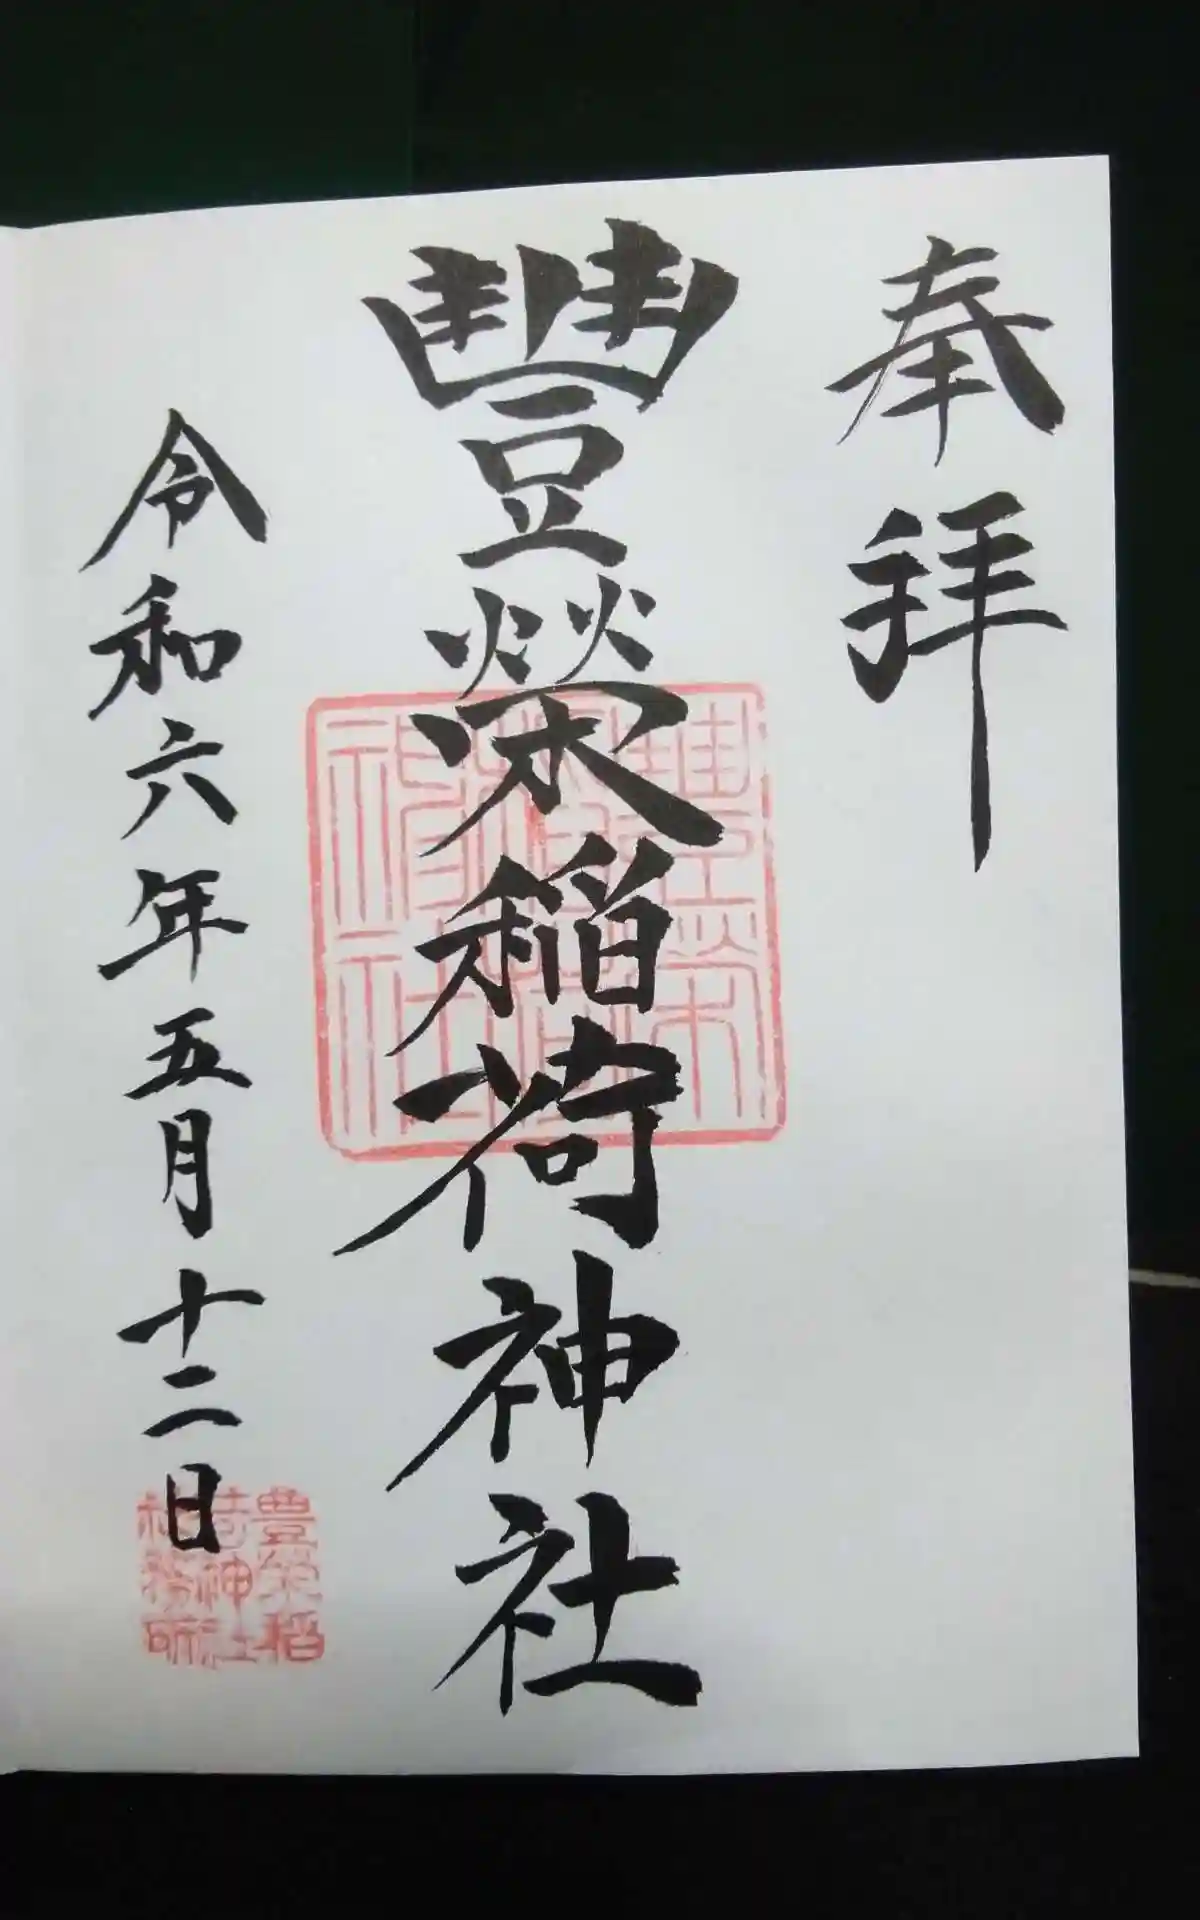 奉拝
豐榮稲荷神社
豐榮稲荷神社
令和六年五月十二日
豊栄稲荷神社社務所